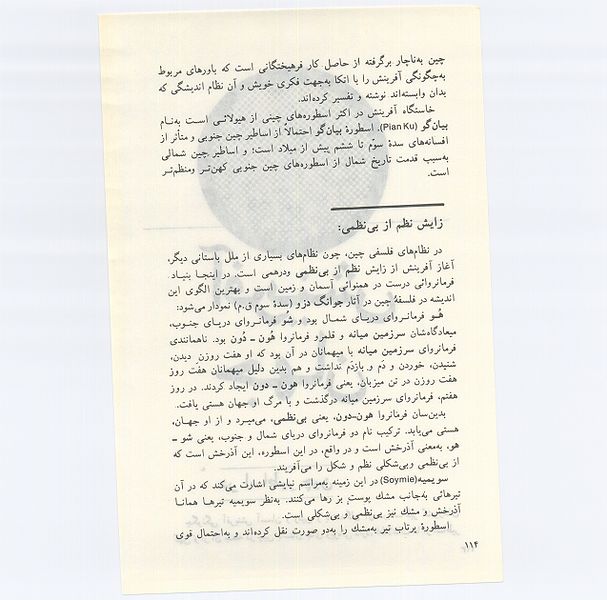 چین به‌ناچار برگرفته از حاصل کار فرهیختگانی است که باورهای مربوط
به‌چگونگی آفرینش را با اتکا به‌جهت فکری خویش و آن نظام اندیشگی که
بدان وابسته‌اند نوشته و تفسیر کرده‌اند.
خاستگاه آفرینش در اکثر اسطوره‌های چینی از هیولائی است به‌نام
پیان‌گو (Pian Ku). اسطورهٔ پیان‌گو احتمالاً از اساطیر چین جنوبی و متأثر از
افسانه‌های سدهٔ سوّم تا ششم پیش از میلاد است؛ و اساطیر چین شمالی
به‌سبب قدمت تاریخ شمال از اسطوره‌های چین جنوبی کهن‌تر ومنظم‌تر
است.
زایش نظم از بی‌نظمی:
در نظام‌های فلسفی چین، چون نظام‌های بسیاری از ملل باستانی دیگر،
آغاز آفرینش از زایش نظم از بی‌نظمی ودرهمی است. در اینجا بنیاد
فرمانروائی درست در همنوائی آسمان و زمین است و بهترین الگوی این
اندیشه در فلسفهٔ چین در آثار جوانگ دزو (سدهٔ سوم ق.م) نمودار می‌شود:
هُو فرمانروای دریای شمال بود و شُو فرمانروای دریای جنوب،
میعادگاه‌شان سرزمین میانه و قلمرو فرمانروا هُون ـ دُون بود. ناهمانندی
فرمانروای سرزمین میانه با میهمانان در آن بود که او هفت روزن دیدن،
شنیدن، خوردن و دَم و بازدَم نداشت و هم بدین دلیل میهمانان هفت روز
هفت روزن در تن میزبان، یعنی فرمانروا هون ـ دون ایجاد کردند. در روز
هفتم، فرمانروای سرزمین میانه درگذشت و با مرگ او جهان هستی یافت.
بدین‌سان فرمانروا هون‌-دون، یعنی بی‌نظمی، می‌میرد و از او جهان،
هستی می‌یابد. ترکیب نام دو فرمانروای دریای شمال و جنوب، یعنی شو ـ
هو، به‌معنی آذرخش است و در واقع، در این اسطوره، این آذرخش است که
از بی‌نظمی وبی‌شکلی نظم و شکل را می‌آفریند.
سویمیه(Soymie) در این زمینه به‌مراسم نیایشی اشارت می‌کند که در آن
تیرهائی به‌جانب مشك پوست بز رها می‌کنند. به‌نظر سویمیه تیرها همانا
آذرخش و مشك نیز بی‌نظمی و بی‌شکلی است.
اسطورهٔ پرتاب تیر به‌مشك را به‌دو صورت نقل کرده‌اند و به‌احتمال قوی
۱۱۴